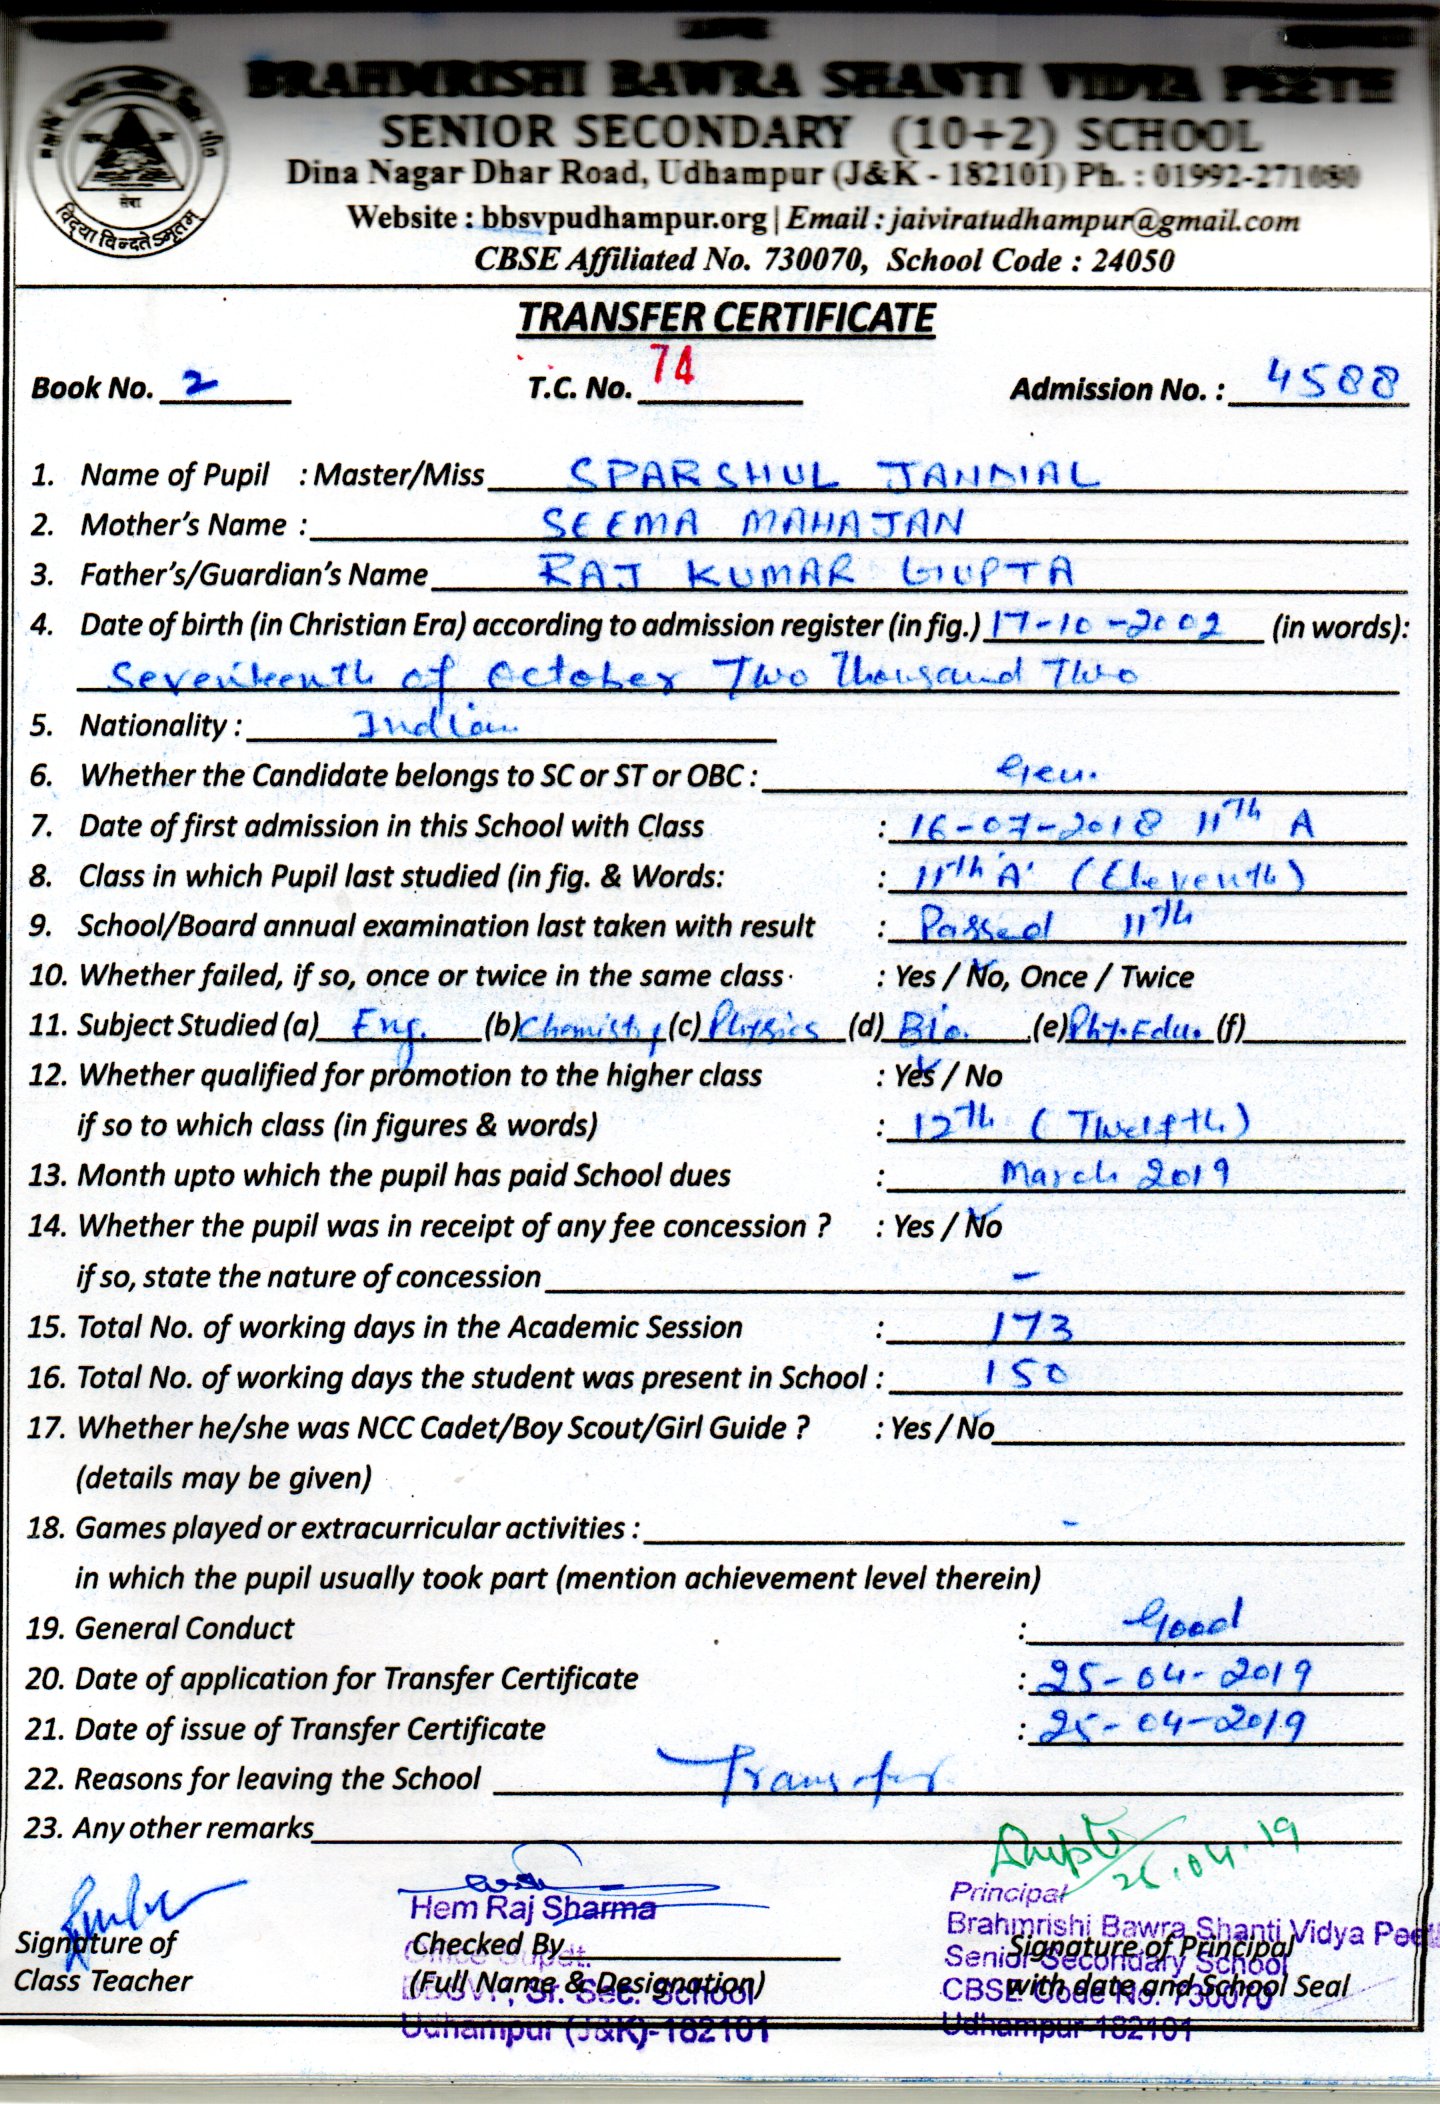 BRAHMRISHI BAWRA SHANTI VIDYA PEETH
SENIOR SECONDARY (10+2) SCHOOL
Dina Nagar Dhar Road, Udhampur (J&K - 182101) Ph. : 01992-271080
Website : bbsvpudhampur.org | Email : jaiviratudhampur@gmail.com
CBSE Affiliated No. 730070, School Code : 24050
सेवा
विद्यया विन्दतेऽमृतम्
TRANSFER CERTIFICATE
Book No. 2 T.C. No. 74 Admission No. : 4588
1. Name of Pupil : Master/Miss SPARSHUL JANDIAL
2. Mother's Name : SEEMA MAHAJAN
3. Father's/Guardian's Name RAJ KUMAR GUPTA
4. Date of birth (in Christian Era) according to admission register (in fig.) 17-10-2002 (in words):
Seventeenth of October Two Thousand Two
5. Nationality : Indian
6. Whether the Candidate belongs to SC or ST or OBC : Gen.
7. Date of first admission in this School with Class : 16-07-2018 11th A
8. Class in which Pupil last studied (in fig. & Words: : 11th 'A' (Eleventh)
9. School/Board annual examination last taken with result : Passed 11th
10. Whether failed, if so, once or twice in the same class : Yes / No, Once / Twice
11. Subject Studied (a) Eng. (b) Chemistry (c) Physics (d) Bio. (e) Phy. Edu. (f)
12. Whether qualified for promotion to the higher class : Yes / No
if so to which class (in figures & words) : 12th (Twelfth)
13. Month upto which the pupil has paid School dues : March 2019
14. Whether the pupil was in receipt of any fee concession ? : Yes / No
if so, state the nature of concession -
15. Total No. of working days in the Academic Session : 173
16. Total No. of working days the student was present in School : 150
17. Whether he/she was NCC Cadet/Boy Scout/Girl Guide ? : Yes / No
(details may be given)
18. Games played or extracurricular activities : -
in which the pupil usually took part (mention achievement level therein)
19. General Conduct : Good
20. Date of application for Transfer Certificate : 25-04-2019
21. Date of issue of Transfer Certificate : 25-04-2019
22. Reasons for leaving the School Transfer
23. Any other remarks
Signature of
Class Teacher
Hem Raj Sharma
Checked By
Office Supdt.
(Full Name & Designation)
BBSVP, Sr. Sec. School
Udhampur (J&K)-182101
Principal
Brahmrishi Bawra Shanti Vidya Peeth
Signature of Principal
Senior Secondary School
with date and School Seal
CBSE Code No. 730070
Udhampur-182101